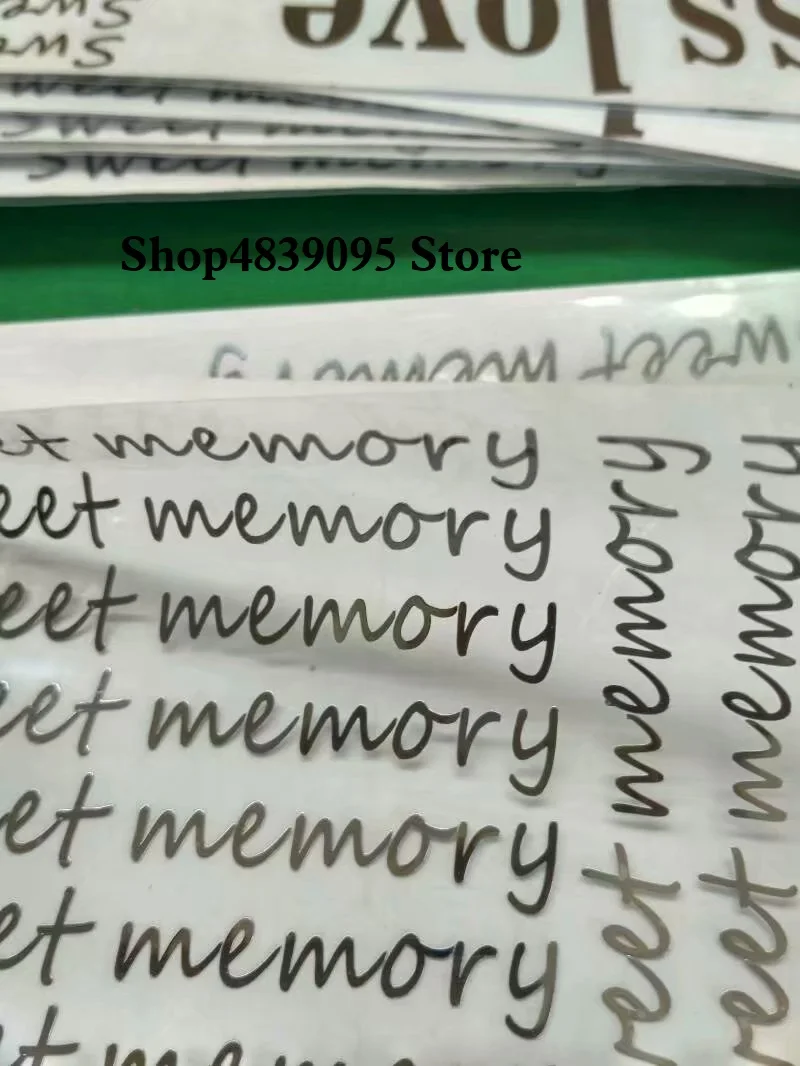 ss love
swe
swe
sweet mem
sweet me
sweet memory
Shop4839095 Store
weet memory
et memory
eet memory
eet memory
eet memory
et memory
et memory
et memo
reet memory
reet memory